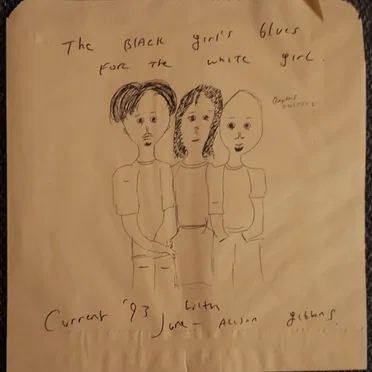 The Black girl's blues
for the white girl.
Current '93 with
June - Alison gibbons.